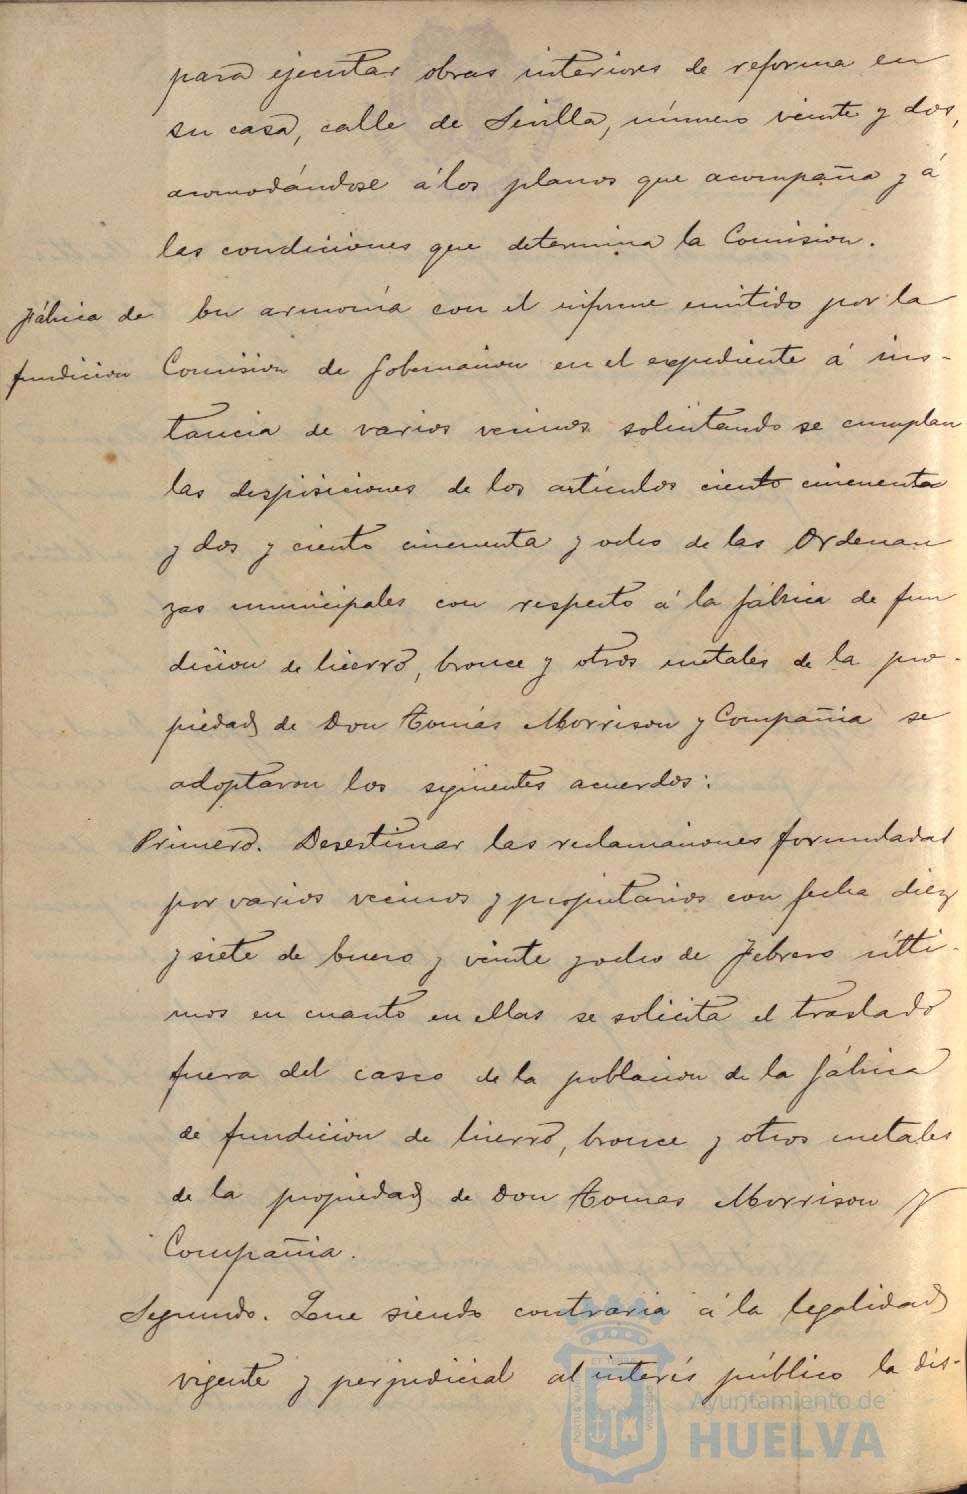 para ejecutar obras interiores de reforma en
su casa, calle de Sevilla, número veinte y dos,
acomodándose á los planos que acompaña y á
las condiciones que determina la Comision.
Fábrica de
fundicion
En armonía con el informe emitido por la
Comision de Gobernacion en el expediente á ins-
tancia de varios vecinos solicitando se cumplan
las disposiciones de los artículos ciento cincuenta
y dos y ciento cincuenta y ocho de las Ordenan
zas municipales con respecto á la fábrica de fun
dicion de hierro, bronce y otros metales de la pro-
piedad de Don Tomás Morrison y Compañia se
adoptaron los siguientes acuerdos:
Primero. Desestimar las reclamaciones formuladas
por varios vecinos y propietarios con fecha diez
y siete de Enero y veinte y ocho de Febrero últi-
mos en cuanto en ellas se solicita el traslado
fuera del casco de la poblacion de la fábrica
de fundicion de hierro, bronce y otros metales
de la propiedad de Don Tomas Morrison y
Compañia.
Segundo. Que siendo contraria á la legalidad
vigente y perjudicial al interés público la dis-
Ayuntamiento de
HUELVA